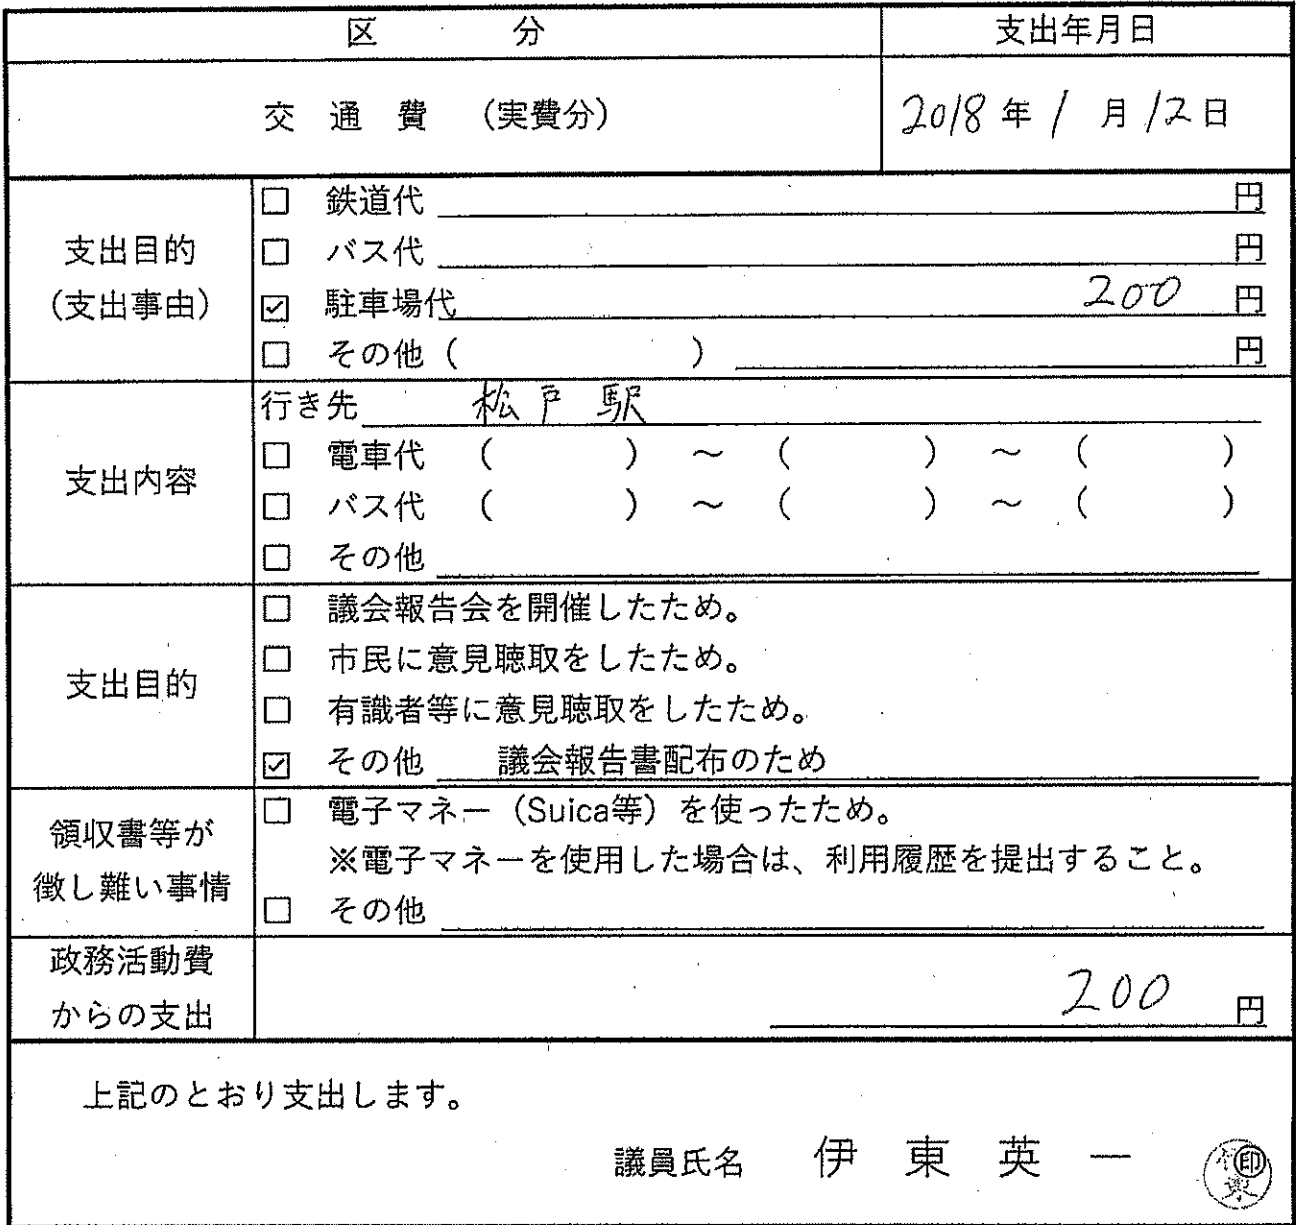 区 分 支出年月日
交 通 費 （実費分） 2018 年 1 月 12 日
支出目的
（支出事由）
☐ 鉄道代 円
☐ バス代 円
☑ 駐車場代 200 円
☐ その他（ ） 円
支出内容
行き先 松戸駅
☐ 電車代 （ ） ～ （ ） ～ （ ）
☐ バス代 （ ） ～ （ ） ～ （ ）
☐ その他
支出目的
☐ 議会報告会を開催したため。
☐ 市民に意見聴取をしたため。
☐ 有識者等に意見聴取をしたため。
☑ その他 議会報告書配布のため
領収書等が
徴し難い事情
☐ 電子マネー（Suica等）を使ったため。
※電子マネーを使用した場合は、利用履歴を提出すること。
☐ その他
政務活動費
からの支出
200 円
上記のとおり支出します。
議員氏名 伊 東 英 一 ㊞
伊東